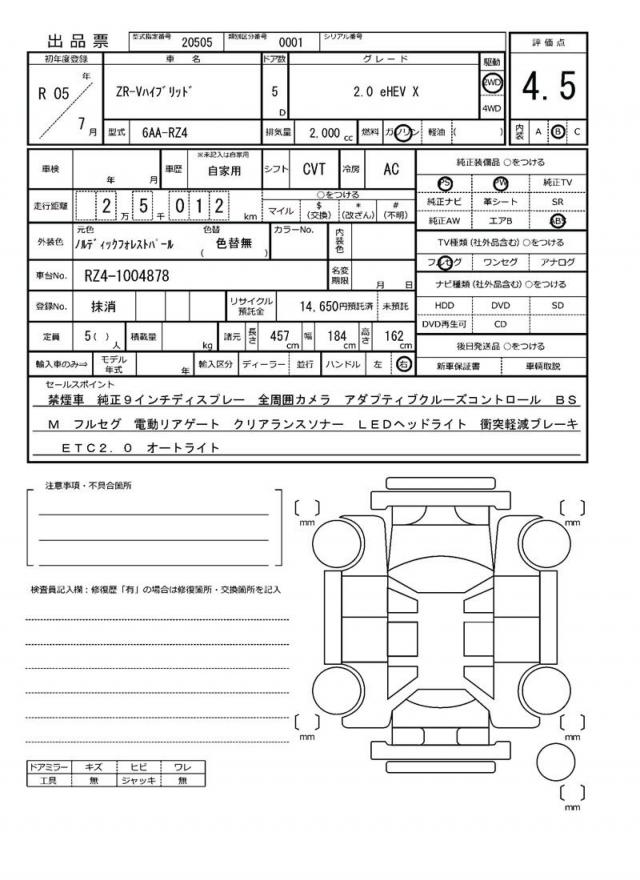 出品票 型式指定番号 20505 類別区分番号 0001 シリアル番号
評価点
初年度登録 車名 ドア数 グレード 駆動
R 05 年 7 月 ZR-Vﾊｲﾌﾞﾘｯﾄﾞ 5 D 2.0 eHEV X 2WD 4WD 4.5
型式 6AA-RZ4 排気量 2,000 cc 燃料 ガソリン 軽油 ( ) 内装 A B C
車検 年 月 車歴 ※未記入は自家用 自家用 シフト CVT 冷房 AC 純正装備品 ○をつける
PS PW 純正TV
走行距離 2 万 5 千 0 1 2 km ○をつける
マイル $ (交換) * (改ざん) # (不明)
純正ナビ 革シート SR
純正AW エアB ABS
外装色 元色 ﾉﾙﾃﾞｨｯｸﾌｫﾚｽﾄﾊﾟｰﾙ 色替 ( 色替無 ) カラーNo. 内装色
TV種類 (社外品含む) ○をつける
フルセグ ワンセグ アナログ
車台No. RZ4-1004878 名変期限 月 日
ナビ種類 (社外品含む) ○をつける
登録No. 抹消 リサイクル預託金 14,650円預託済 未預託
HDD DVD SD
DVD再生可 CD
定員 5( ) 人 積載量 kg 諸元 長さ 457 cm 幅 184 cm 高さ 162 cm
後日発送品 ○をつける
輸入車のみ⇒ モデル年式 年 輸入区分 ディーラー 並行 ハンドル 左 右 新車保証書 車輌取説
セールスポイント
禁煙車 純正９インチディスプレー 全周囲カメラ アダプティブクルーズコントロール ＢＳ
Ｍ フルセグ 電動リアゲート クリアランスソナー ＬＥＤヘッドライト 衝突軽減ブレーキ
ＥＴＣ２．０ オートライト
注意事項・不具合箇所
検査員記入欄：修復歴「有」の場合は修復箇所・交換箇所を記入
mm
mm
mm
mm
mm
ドアミラー キズ ヒビ ワレ
工具 無 ジャッキ 無